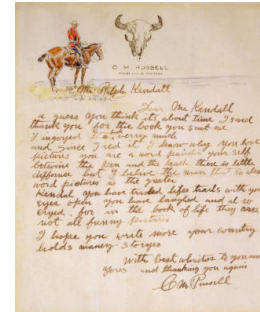 C. M. RUSSELL
GREAT FALLS, MONTANA
Mr Ralph Kendall
Dear Mr Kendall
I guess you think its about time I
thank you for the book you sent me
I injoyed it verry much
and since I red it I know why you love
pictures you are a word painter your self
betwine the pen and the brush there is little
diffornce but I believe the man that makes
word pictures is the greater
Kendal you have traled lifes trails with your
eyes open you have laughed and
cryed for in the book of life they are
not all funny pictures
I hope you write more your country
holds maney storyes
With best wishes to you and
yours and thanking you again
C M Russell